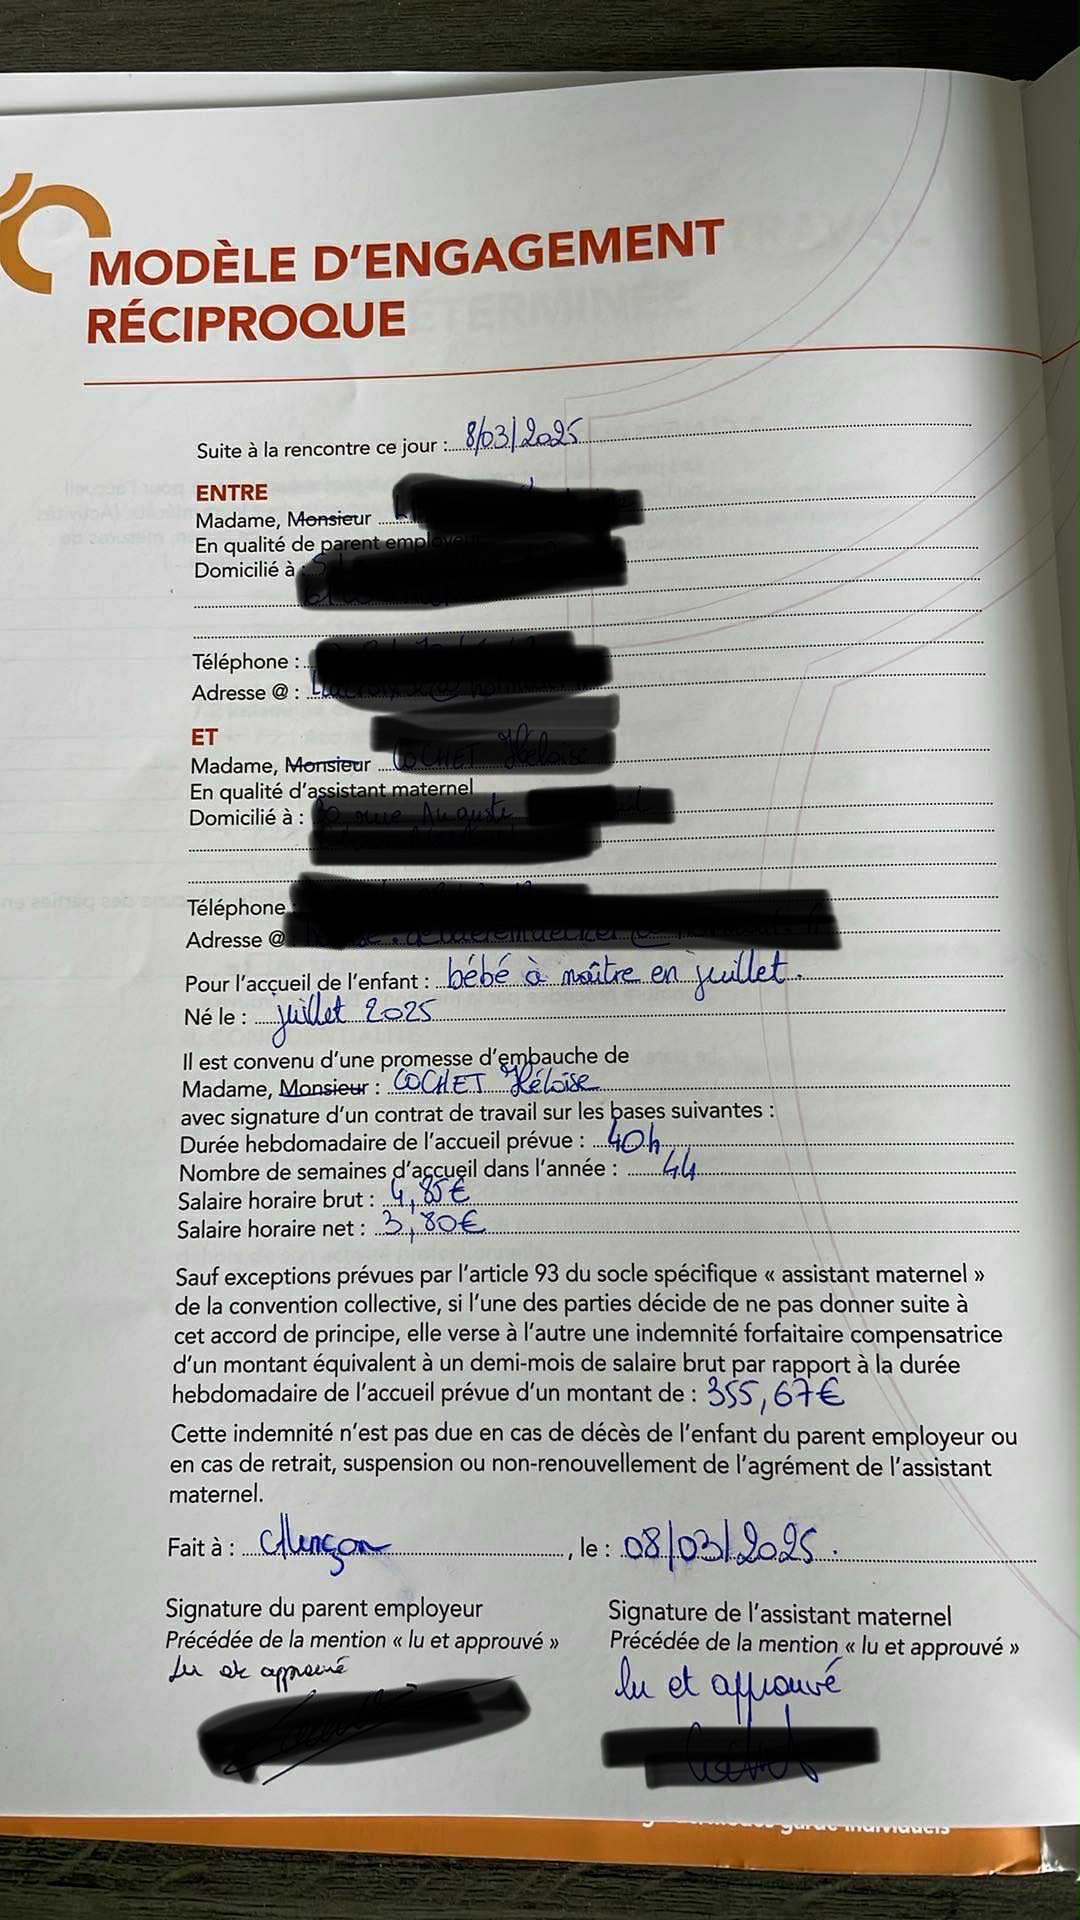 MODÈLE D'ENGAGEMENT
RÉCIPROQUE
Suite à la rencontre ce jour : 8/03/2025
ENTRE
Madame, Monsieur
En qualité de parent employeur
Domicilié à :
Téléphone :
Adresse @ :
ET
Madame, Monsieur COCHET Héloïse
En qualité d'assistant maternel
Domicilié à : rue Auguste
Téléphone
Adresse @
Pour l'accueil de l'enfant : bébé à naître en juillet.
Né le : juillet 2025
Il est convenu d'une promesse d'embauche de
Madame, Monsieur : COCHET Héloïse
avec signature d'un contrat de travail sur les bases suivantes :
Durée hebdomadaire de l'accueil prévue : 40h
Nombre de semaines d'accueil dans l'année : 44
Salaire horaire brut : 4,85€
Salaire horaire net : 3,80€
Sauf exceptions prévues par l'article 93 du socle spécifique « assistant maternel »
de la convention collective, si l'une des parties décide de ne pas donner suite à
cet accord de principe, elle verse à l'autre une indemnité forfaitaire compensatrice
d'un montant équivalent à un demi-mois de salaire brut par rapport à la durée
hebdomadaire de l'accueil prévue d'un montant de : 355,67€
Cette indemnité n'est pas due en cas de décès de l'enfant du parent employeur ou
en cas de retrait, suspension ou non-renouvellement de l'agrément de l'assistant
maternel.
Fait à : Alençon, le : 08/03/2025.
Signature du parent employeur
Précédée de la mention « lu et approuvé »
Lu et approuvé
Signature de l'assistant maternel
Précédée de la mention « lu et approuvé »
lu et approuvé